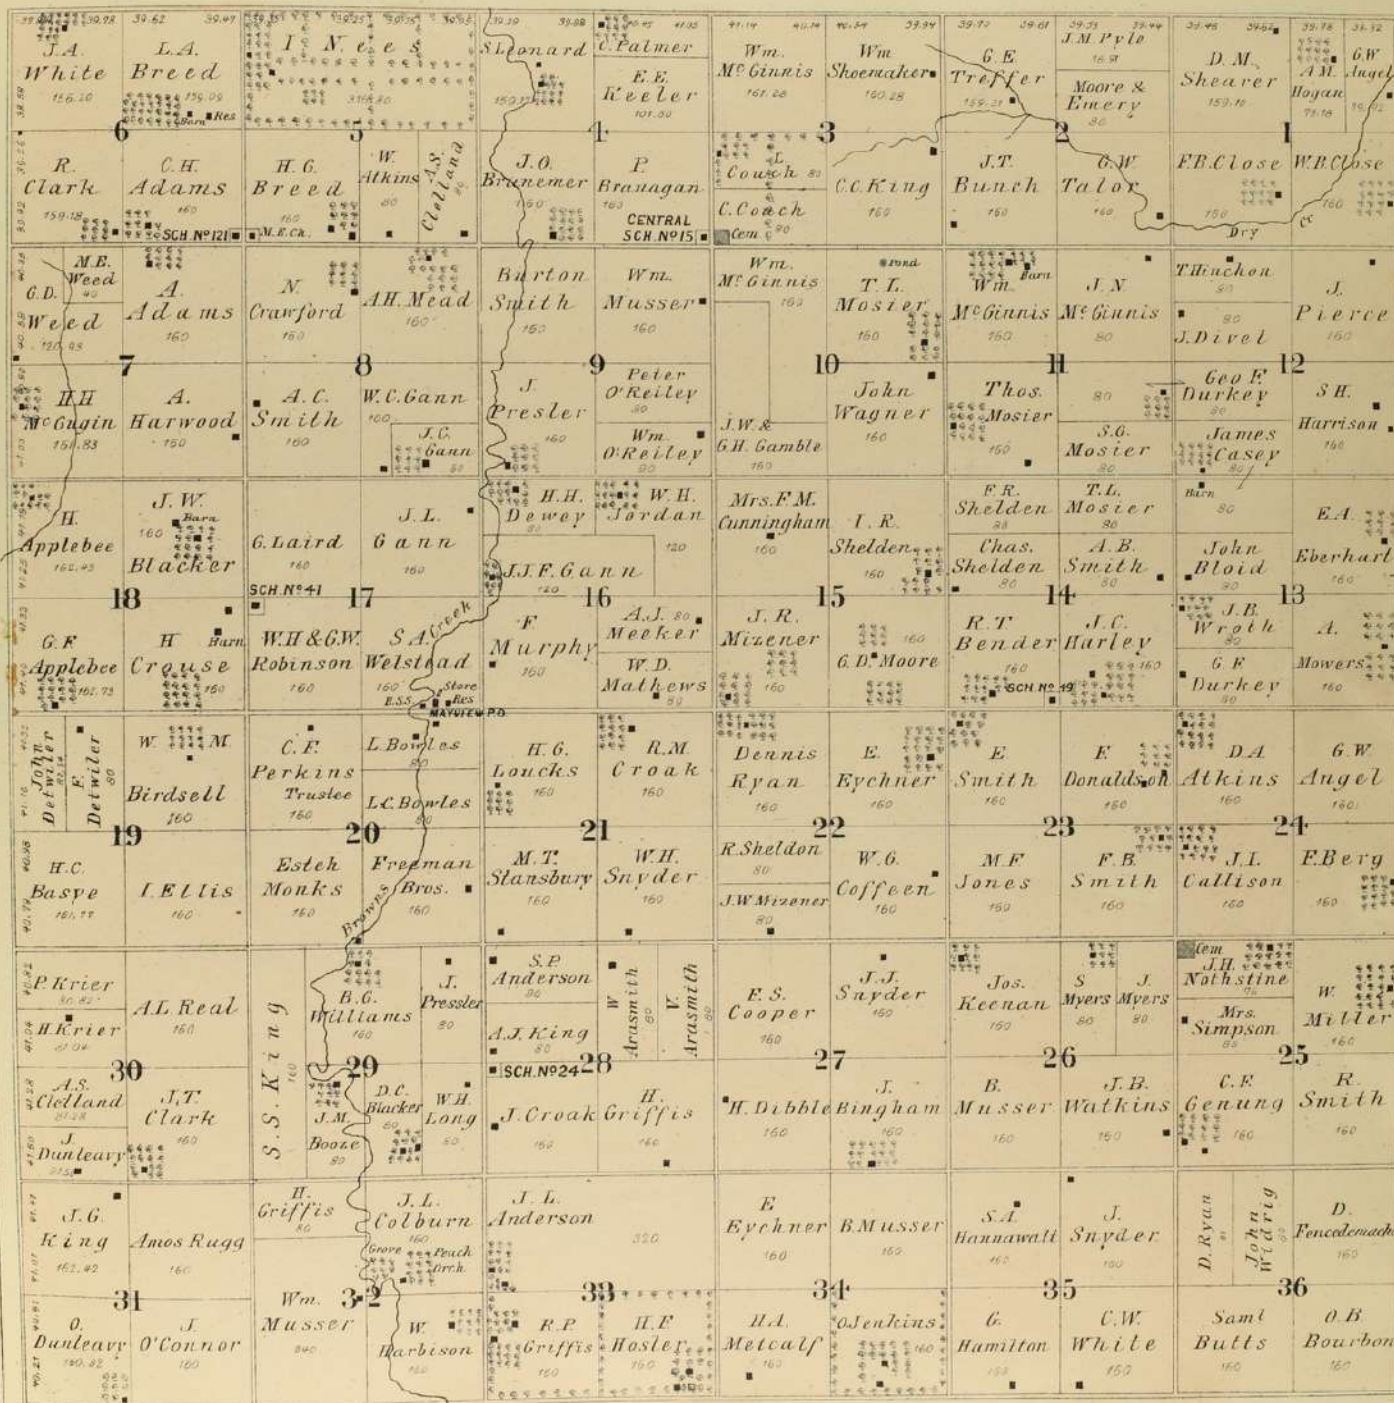 39.78 39.62 39.47
J.A. White
156.20
L.A. Breed
159.09
Barn Res
6
I. Nees
5
S Leonard
C. Palmer
E.E. Keeler
4
Wm. McGinnis
161.28
Wm Shoemaker
160.28
3
G.E. Treffer
159.21
J.M. Pyle
Moore & Emery
80
2
D.M. Shearer
159.10
A.M. Hogan
G.W Angel
1
R. Clark
159.18
C.H. Adams
160
SCH. No 121
H.G. Breed
160
M.E.Ch.
W. Atkins
80
A.S. Clelland
80
J.O. Brunemer
160
P. Branagan
160
CENTRAL
SCH. No 15
L Couch 80
C. Coach
80
Cem
C.C. King
160
J.T. Bunch
160
G.W Talor
160
F.B. Close
160
Dry
W.B. Close
160
Cr
G.D. Weed
M.E. Weed
40
A. Adams
160
7
N. Crawford
160
A.H. Mead
160
8
Burton Smith
160
Wm. Musser
160
9
Wm. McGinnis
160
Pond
T.L. Mosier
160
10
Barn
Wm. McGinnis
160
J.N McGinnis
80
11
T Hinchon
80
80
J. Divel
J. Pierce
160
12
H.H McGugin
161.83
A. Harwood
160
A.C. Smith
160
W.C. Gann
100
J.C. Gann
J. Presler
160
Peter O'Reiley
80
Wm. O'Reiley
80
J.W. & G.H. Gamble
160
John Wagner
160
Thos. Mosier
160
80
S.G. Mosier
80
Geo F. Durkey
80
James Casey
80
S H. Harrison
160
H. Applebee
162.43
J.W. Blacker
160
Barn
18
G. Laird
160
SCH. No 41
J.L. Gann
160
17
H.H. Dewey
80
W.H. Jordan
120
J.J.F. Gann
120
16
Mrs. F.M. Cunningham
160
I.R. Shelden
160
15
F.R. Shelden
80
T.L. Mosier
80
Chas. Shelden
80
A.B. Smith
80
14
Barn
80
John Bloid
80
E.A. Eberhart
160
13
G.F. Applebee
161.73
H Crouse
160
Barn
W.H & G.W. Robinson
160
S A. Welstead
160
Creek
B.S.S
Store
Res
MAYVIEW P.O.
F Murphy
160
A.J. Meeker
80
W.D. Mathews
80
J.R. Mizener
160
160
G.D. Moore
R.T Bender
160
SCH. No 49
J.C. Harley
160
J.B. Wroth
80
G.F Durkey
80
A. Mowers
160
John Detwiler
F. Detwiler
80
W. M. Birdsell
160
19
C.F. Perkins
Trustee
160
L. Bowles
80
L.C. Bowles
80
20
H.G. Loucks
160
R.M. Croak
160
21
Dennis Ryan
160
E. Eychner
160
22
E Smith
160
F. Donaldson
160
23
D.A Atkins
160
G.W Angel
160
24
H.C. Basye
I. Ellis
160
Esteh Monks
160
Freeman Bros.
160
Browns
M.T. Stansbury
160
W.H. Snyder
160
R. Sheldon
80
J.W Mizener
80
W.G. Coffeen
160
M.F Jones
160
F.B. Smith
160
J.I. Callison
160
F. Berg
160
P. Krier
80.82
H. Krier
81.04
A.L. Real
160
30
S.S. King
160
B.G. Williams
160
J. Pressler
80
29
S.P. Anderson
80
A.J. King
80
W Arasmith
80
V. Arasmith
80
28
F.S. Cooper
160
J.J. Snyder
160
27
Jos. Keenan
160
S Myers
80
J. Myers
80
26
Cem
J.H. Nothstine
Mrs. Simpson
80
W. Miller
160
25
A.S. Clelland
81.28
J. Dunleavy
J.T. Clark
160
J.M. Booze
80
D.C. Blacker
80
W.H. Long
80
SCH. No 24
J. Croak
160
H. Griffis
160
H. Dibble
160
J. Bingham
160
B. Musser
160
J.B. Watkins
160
C.F. Genung
160
R. Smith
160
J.G. King
162.42
Amos Rugg
160
31
H. Griffis
80
J.L. Colburn
160
Grove
Peach Orch
32
J.L. Anderson
320
33
E Eychner
160
B. Musser
160
34
S.A. Hannawalt
160
J. Snyder
160
35
D. Ryan
John Widrig
D. Fencedemach
160
36
O. Dunleavy
160.82
J. O'Connor
160
Wm. Musser
240
W. Harbison
160
R.P. Griffis
160
H.F Hosler
160
H.A. Metcalf
160
O Jenkins
160
G. Hamilton
160
C.W. White
160
Saml Butts
160
O.B Bourbon
160